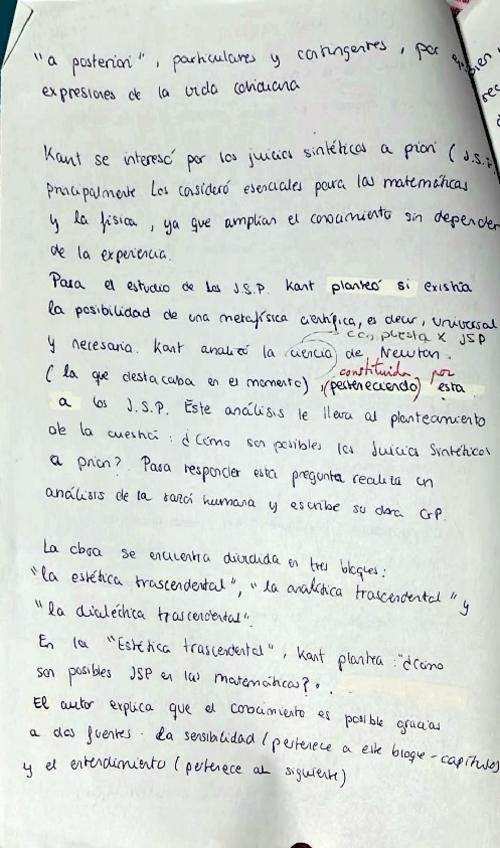 "a posteriori", particulares y contingentes, por
expresiones de la vida cotidiana
Kant se interesó por los juicios sintéticos a priori (J.S.P.
principalmente. Los consideró esenciales para las matemáticas
y la física, ya que amplian el conocimiento sin depender
de la experiencia.
Para el estudio de los J.S.P. Kant planteó si existía
la posibilidad de una metafísica científica, es decir, universal
compuesta x JSP
y necesaria. Kant analizó la ciencia de Newton.
constituida por
(la que destacaba en el momento), (perteneciendo) esta
a los J.S.P. Este análisis le lleva al planteamiento
de la cuestión: ¿Cómo son posibles los Juicios Sintéticos
a priori? Para responder esta pregunta realiza un
análisis de la razón humana y escribe su obra CrP.
La obra se encuentra dividida en tres bloques:
"la estética trascendental", "la analítica trascendental" y
"la dialéctica trascendental".
En la "Estética trascendental", Kant plantea: "¿Cómo
son posibles JSP en las matemáticas?.
El autor explica que el conocimiento es posible gracias
a dos fuentes. La sensibilidad (pertenece a este bloque-capítulo)
y el entendimiento (pertenece al siguiente)